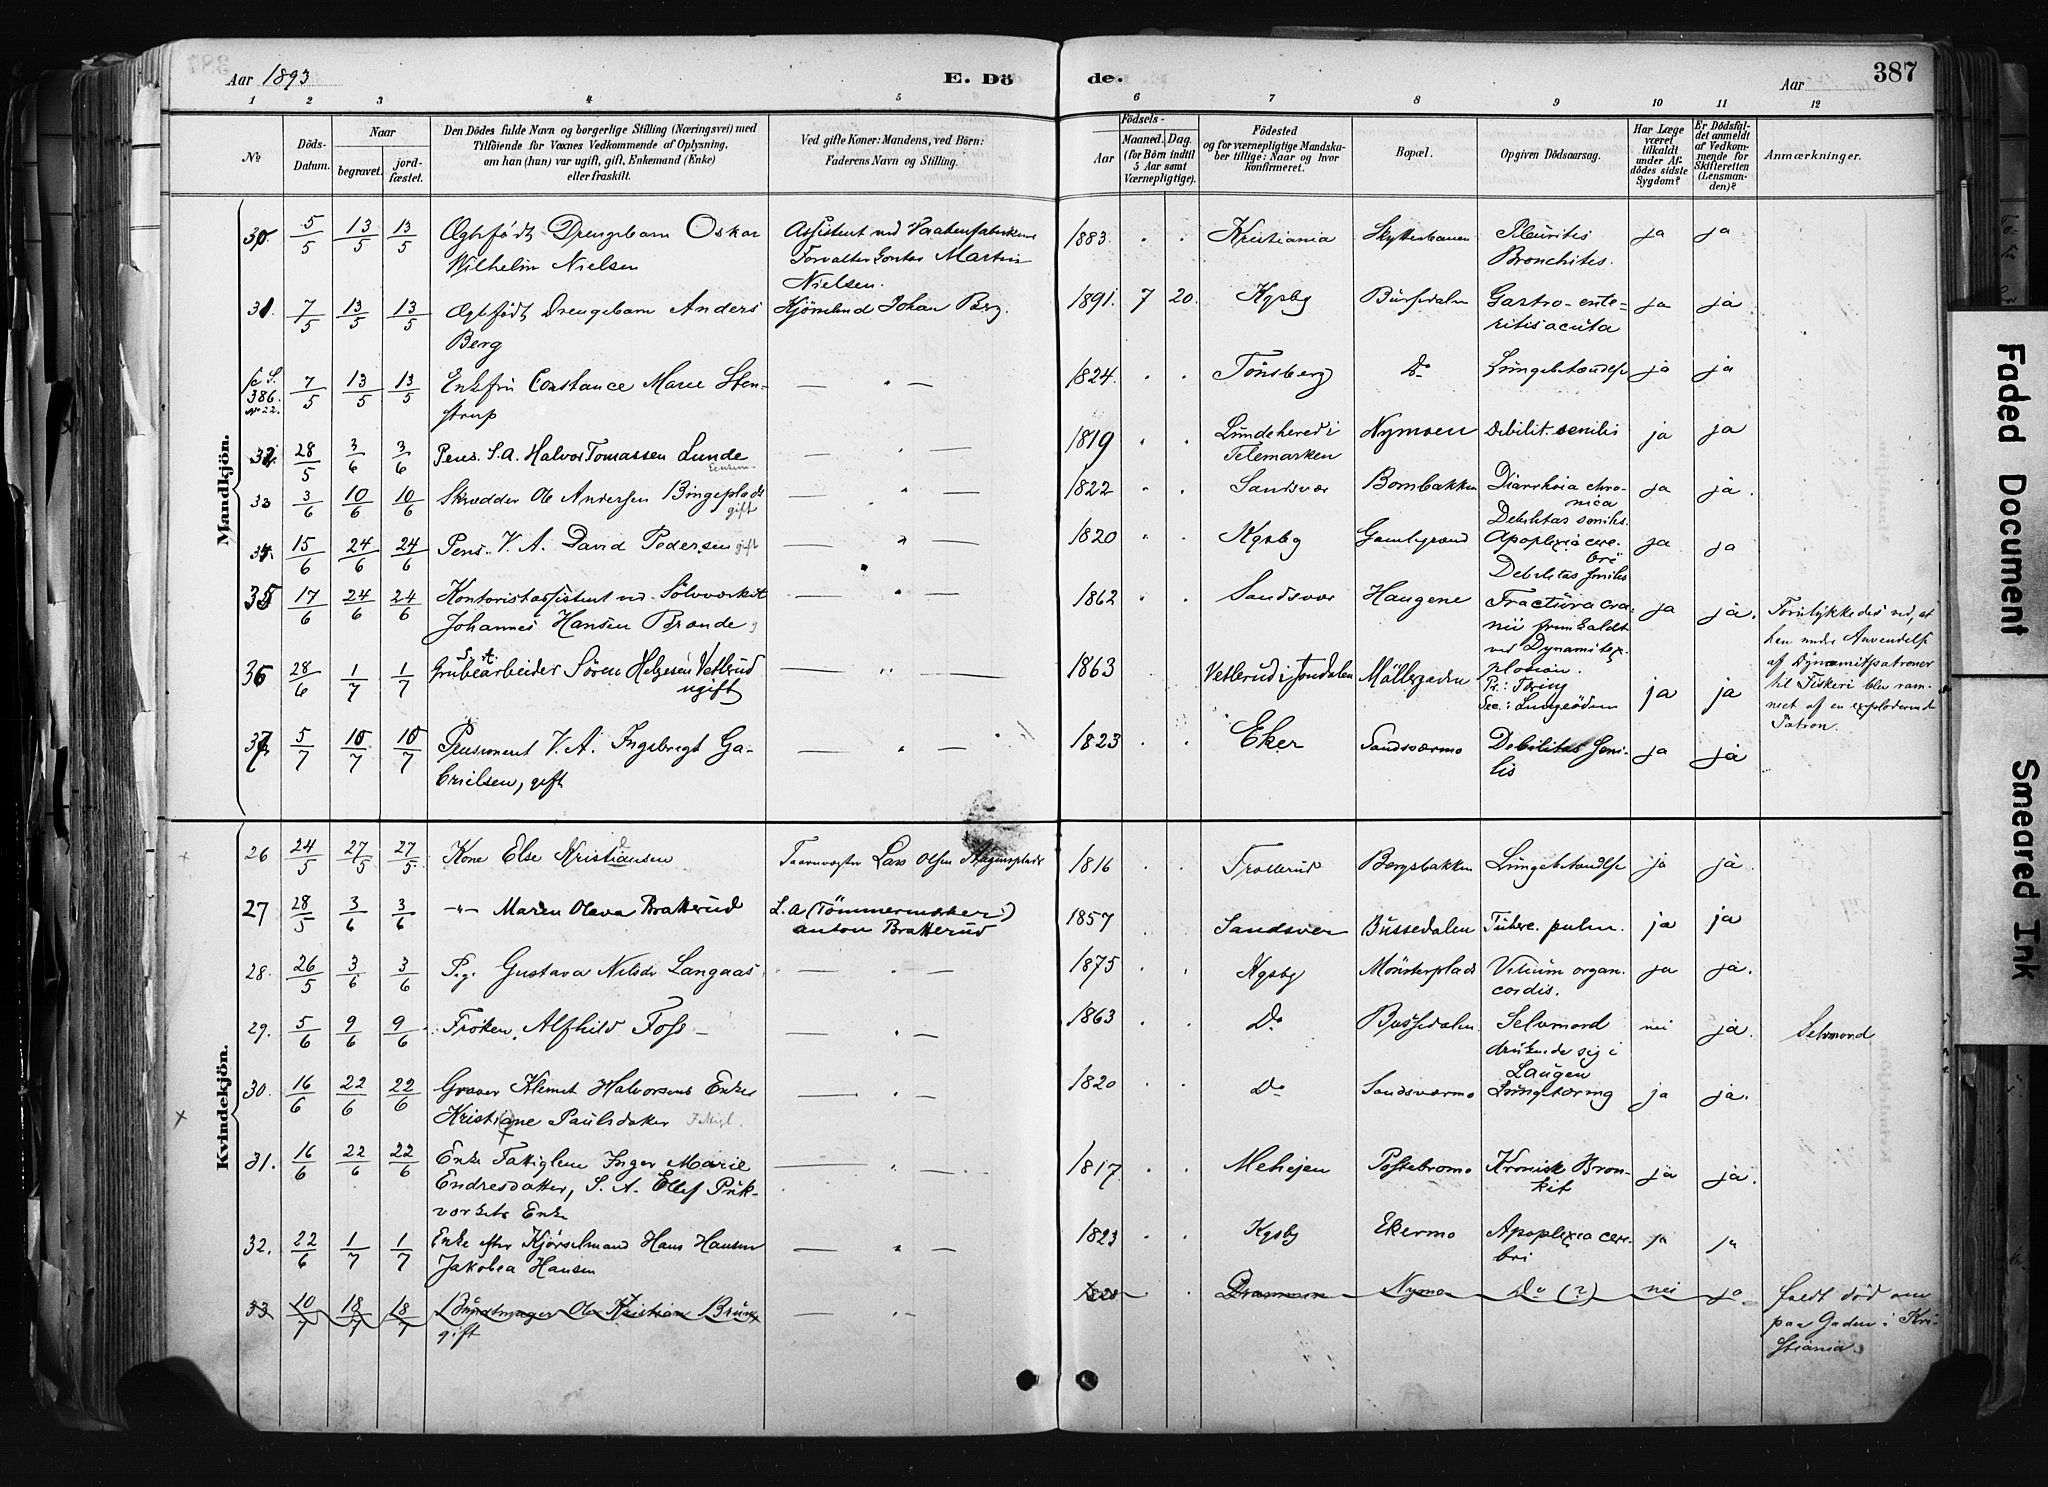 387
Aar 1893
E. Dö
de.
Aar
1 2 3 4 5 6 7 8 9 10 11 12
No
Döds-
Datum.
Naar
begravet.
jord-
fæstet.
Den Dödes fulde Navn og borgerlige Stilling (Næringsvei) med
Tilföiende for Voxnes Vedkommende af Oplysning,
om han (hun) var ugift, gift, Enkemand (Enke)
eller fraskilt.
Ved gifte Koner: Mandens, ved Börn:
Faderens Navn og Stilling.
Födsels-
Aar
Maaned. Dag.
(for Börn indtil
5 Aar samt
Værnepligtige).
Födested
og for værnepligtige Mandska-
ber tillige: Naar og hvor
konfirmeret.
Bopæl.
Opgiven Dödsaarsag.
Har Læge
været
tilkaldt
under Af-
dödes sidste
Sygdom?
Er Dödsfal-
det anmeldt
af Vedkom-
mende for
Skifteretten
(Lensman-
den)?
Anmærkninger.
Mandkjön.
30. 5/5 13/5 13/5 Ægtefödt Drengebarn Oskar
Wilhelm Nielsen
Assistent ved Vaabenfabrikens
Martin
Nielsen.
1883. Kristiania Skytterbanen Pleuritis
Bronchitis. ja ja
31 7/5 13/5 13/5 Ægtefödt Drengebarn Anders
Berg
Johan Berg.
1891. 7 20. Kgsbg Bussedalen Gastro-ente-
ritis acuta ja ja
S.
386.
No 22. 7/5 13/5 13/5 Enkefru Constance Marie Sten-
strup
1824. Tönsberg Do Lungebetændelse ja ja
32 28/5 3/6 3/6 Pens. S.A. Halvor Tomassen Lunde
1819 Lundehered i
Telemarken Nymoen Debilit. senilis ja ja
33 3/6 10/6 10/6 Skrædder Ole Andersen Bingeplads
gift
1822 Sandsvær Bombakken Diarrhoia chro-
nica
Debilitas senilis. ja ja.
34. 15/6 24/6 24/6 Pens. V. A. David Pedersen gift
1820 Kgsbg Apoplexia cere-
bri
Debilitas senilis ja ja
35 17/6 24/6 24/6 Kontoristassistent ved Sölvværket
Johannes Hansen Bronde
1862 Sandsvær Haugene Fractura cra-
nii fremkaldt
ved Dynamitex-
plosion. ja ja.
Forulykkedes ved, at
han under Anvendelse
af Dynamitpatroner
til Fiskeri blev ram-
met af en exploderende
Patron.
36 28/6 1/7 1/7 S. A.
Grubearbeider Sören Helgesen Vetlerud
ugift
1863 Vetlerud i Jondalen Möllegaden Pr.: Tæring
Sec.: Lungeödem ja ja
37 5/7 15/7 15/7 Pensioneret V. A. Ingebregt Ga-
brielsen, gift
1823 Eker Sandsværmo Debilitas seni-
lis ja ja
Kvindekjön.
26 24/5 27/5 27/5 Kone Else Kristiansen
Taarnvægter Lars Olsen
1816 Trollerud Bergsbakken Lungebetændelse ja ja
27 28/5 3/6 3/6 -"- Maren Olava Bratterud
S.A (Tömmermærker)
Anton Bratterud
1857 Sandsver Bussedalen Tuberc. pulm. ja ja
28. 26/5 3/6 3/6 Pg. Gustava Langaas
1875 Kgsbg Mönsterplads Vitium organ.
cordis. ja ja.
29. 5/6 9/6 9/6 Fröken, Alfhild Foss
1863 Do Bussedalen Selvmord
druknede sig i
Laugen nei ja. Selvmord
30. 16/6 22/6 22/6 Graver Klemet Halvorsens Enke
Kristiane Paulsdatter Fattigl.
1820 Do Sandsværmo Lungetæring ja ja.
31. 16/6 22/6 22/6 Enke Fattiglem Inger Marie
Endresdatter, S. A. Ellef
Enke
1817 Mehejen Kronisk Bron-
kit ja ja.
32. 22/6 1/7 1/7 Enke efter Kjörselmand Hans Hansen
Jakobea Hansen
1823 Kgsbg Ekermo Apoplexia cere-
bri ja ja
33 10/7 18/7 18/7 Ole Kristian
gift
Drammen Nymo Do (?) nei ja
faldt död om
paa Gaden i Kri-
stiania.
Faded Document
Smeared Ink